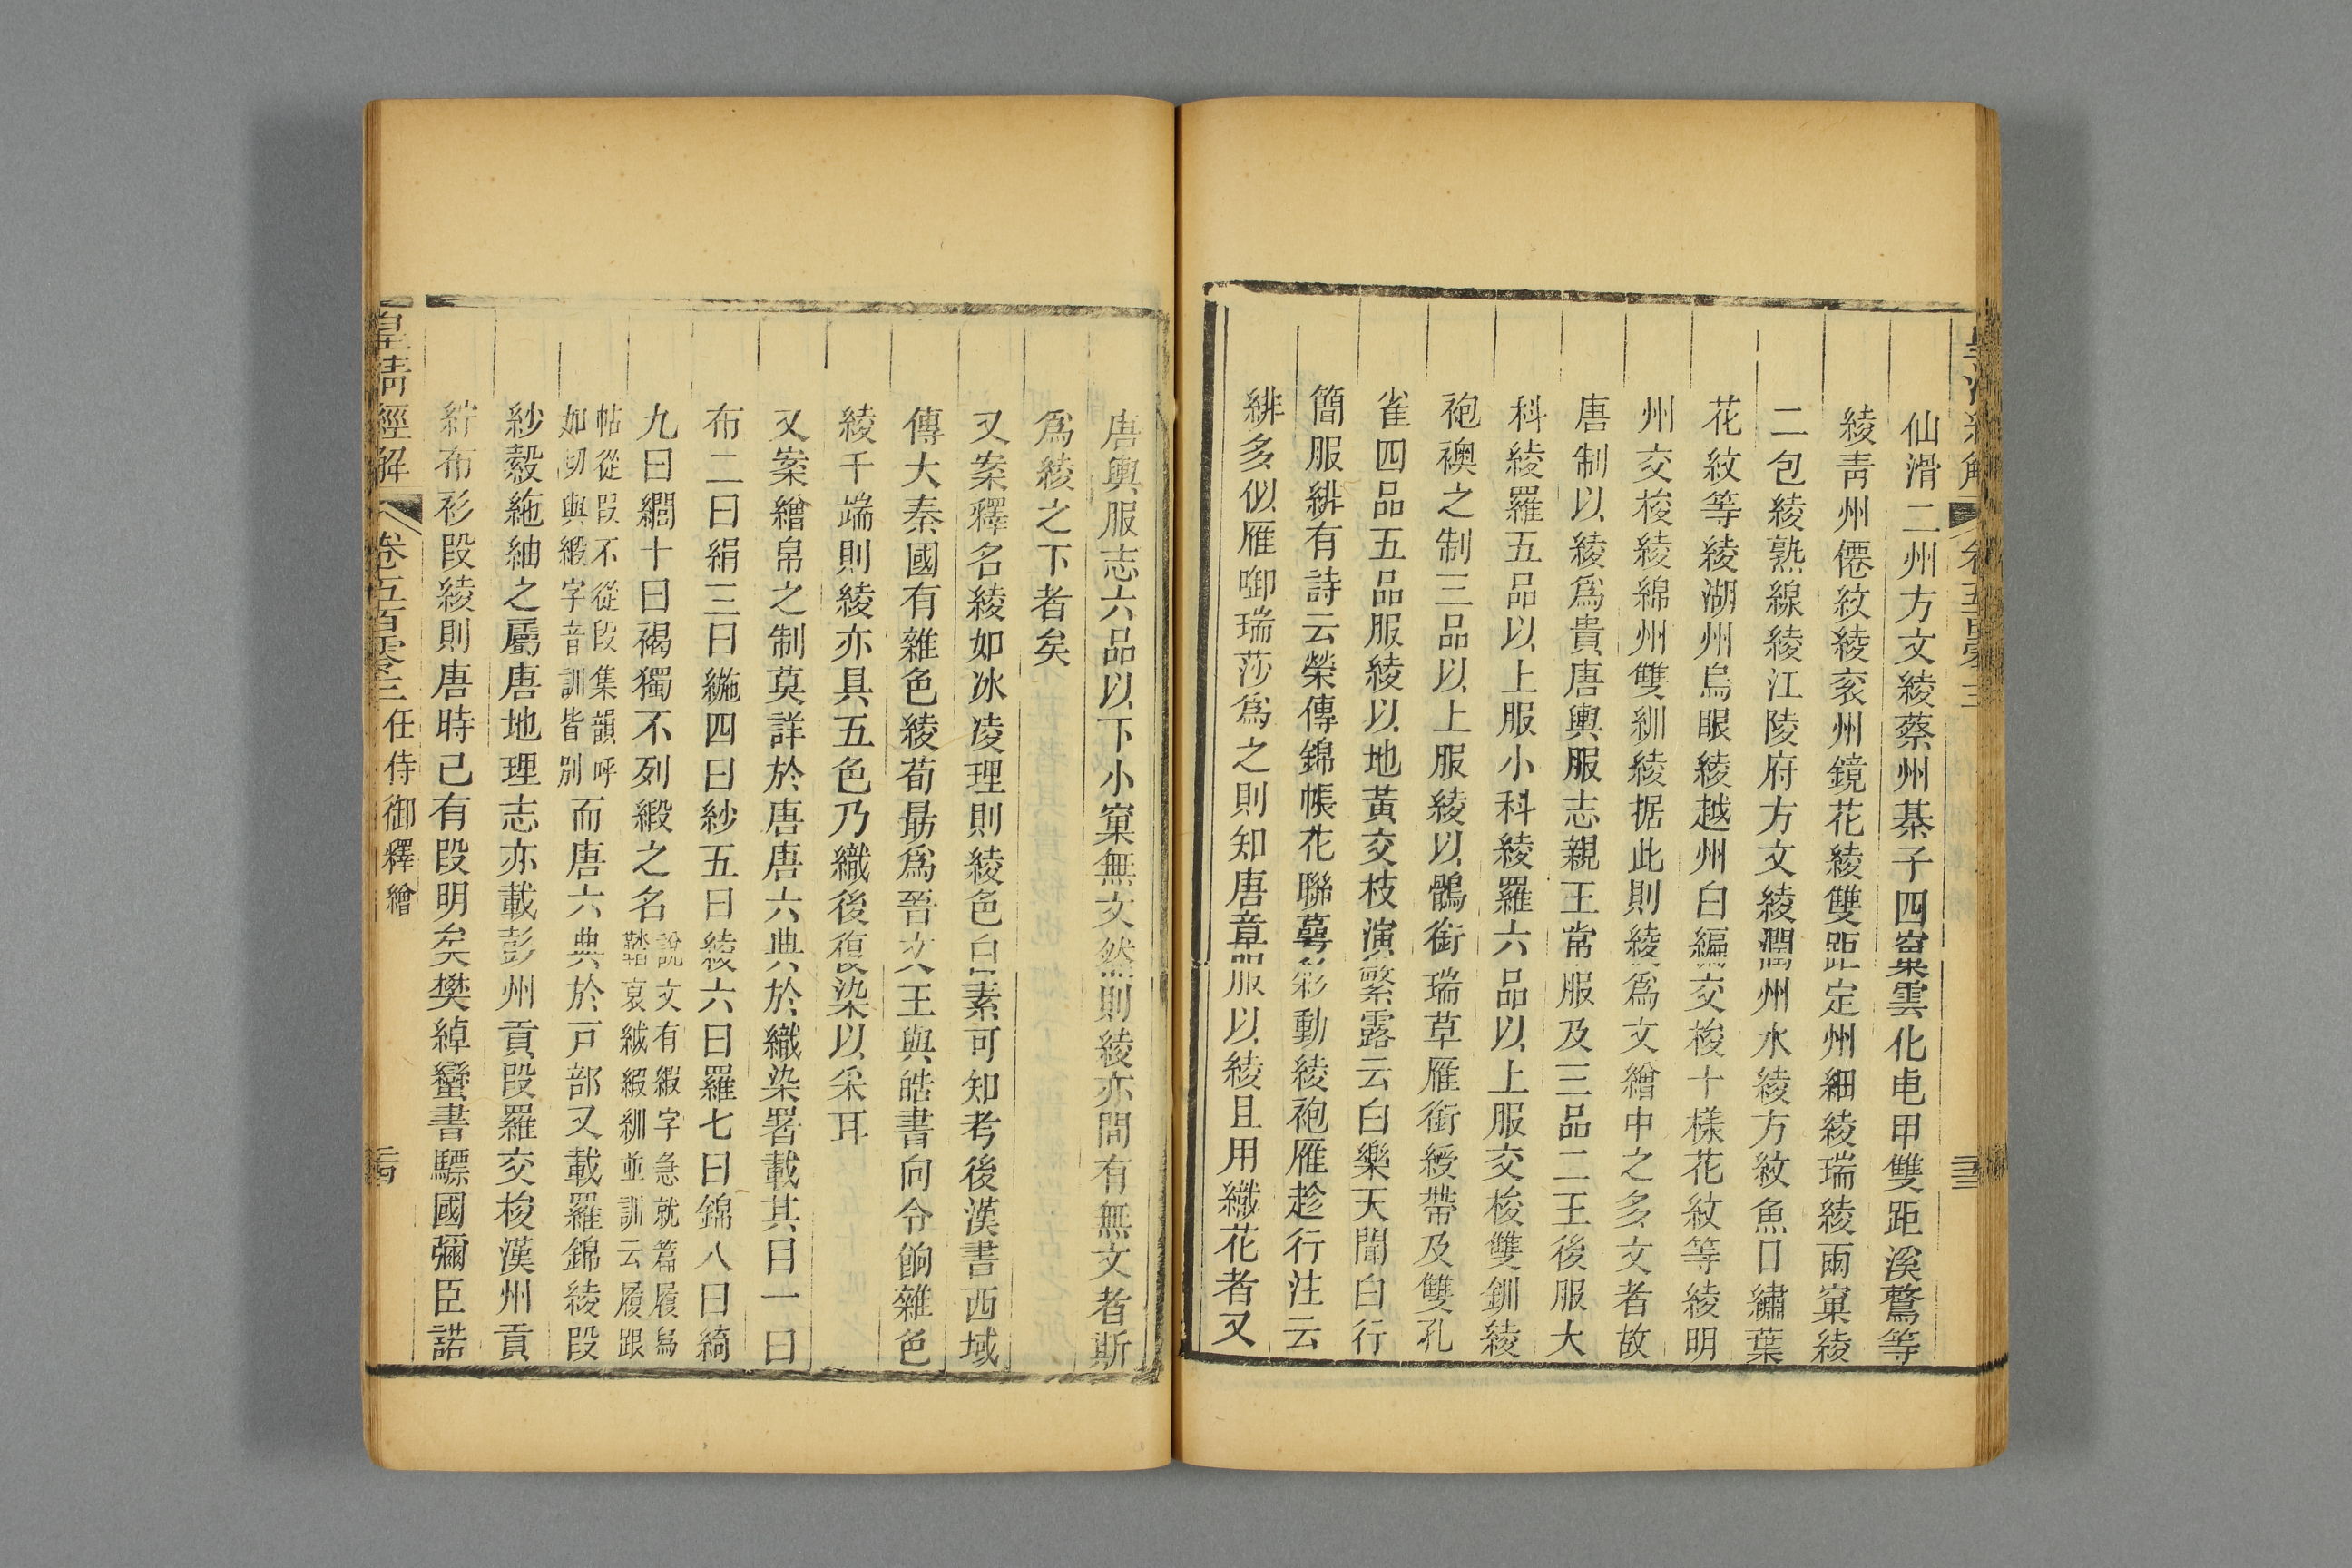 仙滑二州方文綾蔡州綦子四窠雲化龟甲雙距溪鶩等
綾青州僊紋綾衮州鏡花綾雙距定州細綾瑞綾兩窠綾
二包綾熟線綾江陵府方文綾潤州水綾方紋魚口繡葉
花紋等綾湖州烏眼綾越州白編交梭十樣花紋等綾明
州交梭綾綿州雙紃綾据此則綾爲文繒中之多文者故
唐制以綾爲貴唐輿服志親王常服及三品二王後服大
科綾羅五品以上服小科綾羅六品以上服交梭雙釧綾
袍襖之制三品以上服綾以鶻銜瑞草雁銜綬帶及雙孔
雀四品五品服綾以地黃交枝演繁露云白樂天聞白行
簡服緋有詩云榮傳錦帳花聯萼彩動綾袍雁趁行注云
緋多似雁啣瑞莎爲之則知唐章服以綾且用織花者又
唐輿服志六品以下小窠無文然則綾亦間有無文者斯
爲綾之下者矣
又案釋名綾如冰凌理則綾色白素可知考後漢書西域
傳大秦國有雜色綾荀勗爲晉文王與皓書向令餉雜色
綾千端則綾亦具五色乃織後復染以采耳
又案繒帛之制莫詳於唐唐六典於織染署載其目一曰
布二曰絹三曰絁四曰紗五曰綾六曰羅七曰錦八曰綺
九曰繝十曰褐獨不列緞之名說文有緞字急就篇履舄
鞜裒絨緞紃並訓云履跟
帖從叚不從段集韻呼
如切與緞字音訓皆別而唐六典於戸部又載羅錦綾段
紗縠絁紬之屬唐地理志亦載彭州貢段羅交梭漢州貢
紵布衫段綾則唐時已有段明矣樊綽蠻書驃國彌臣諾
皇清經解
卷五百零三
任侍御釋繒